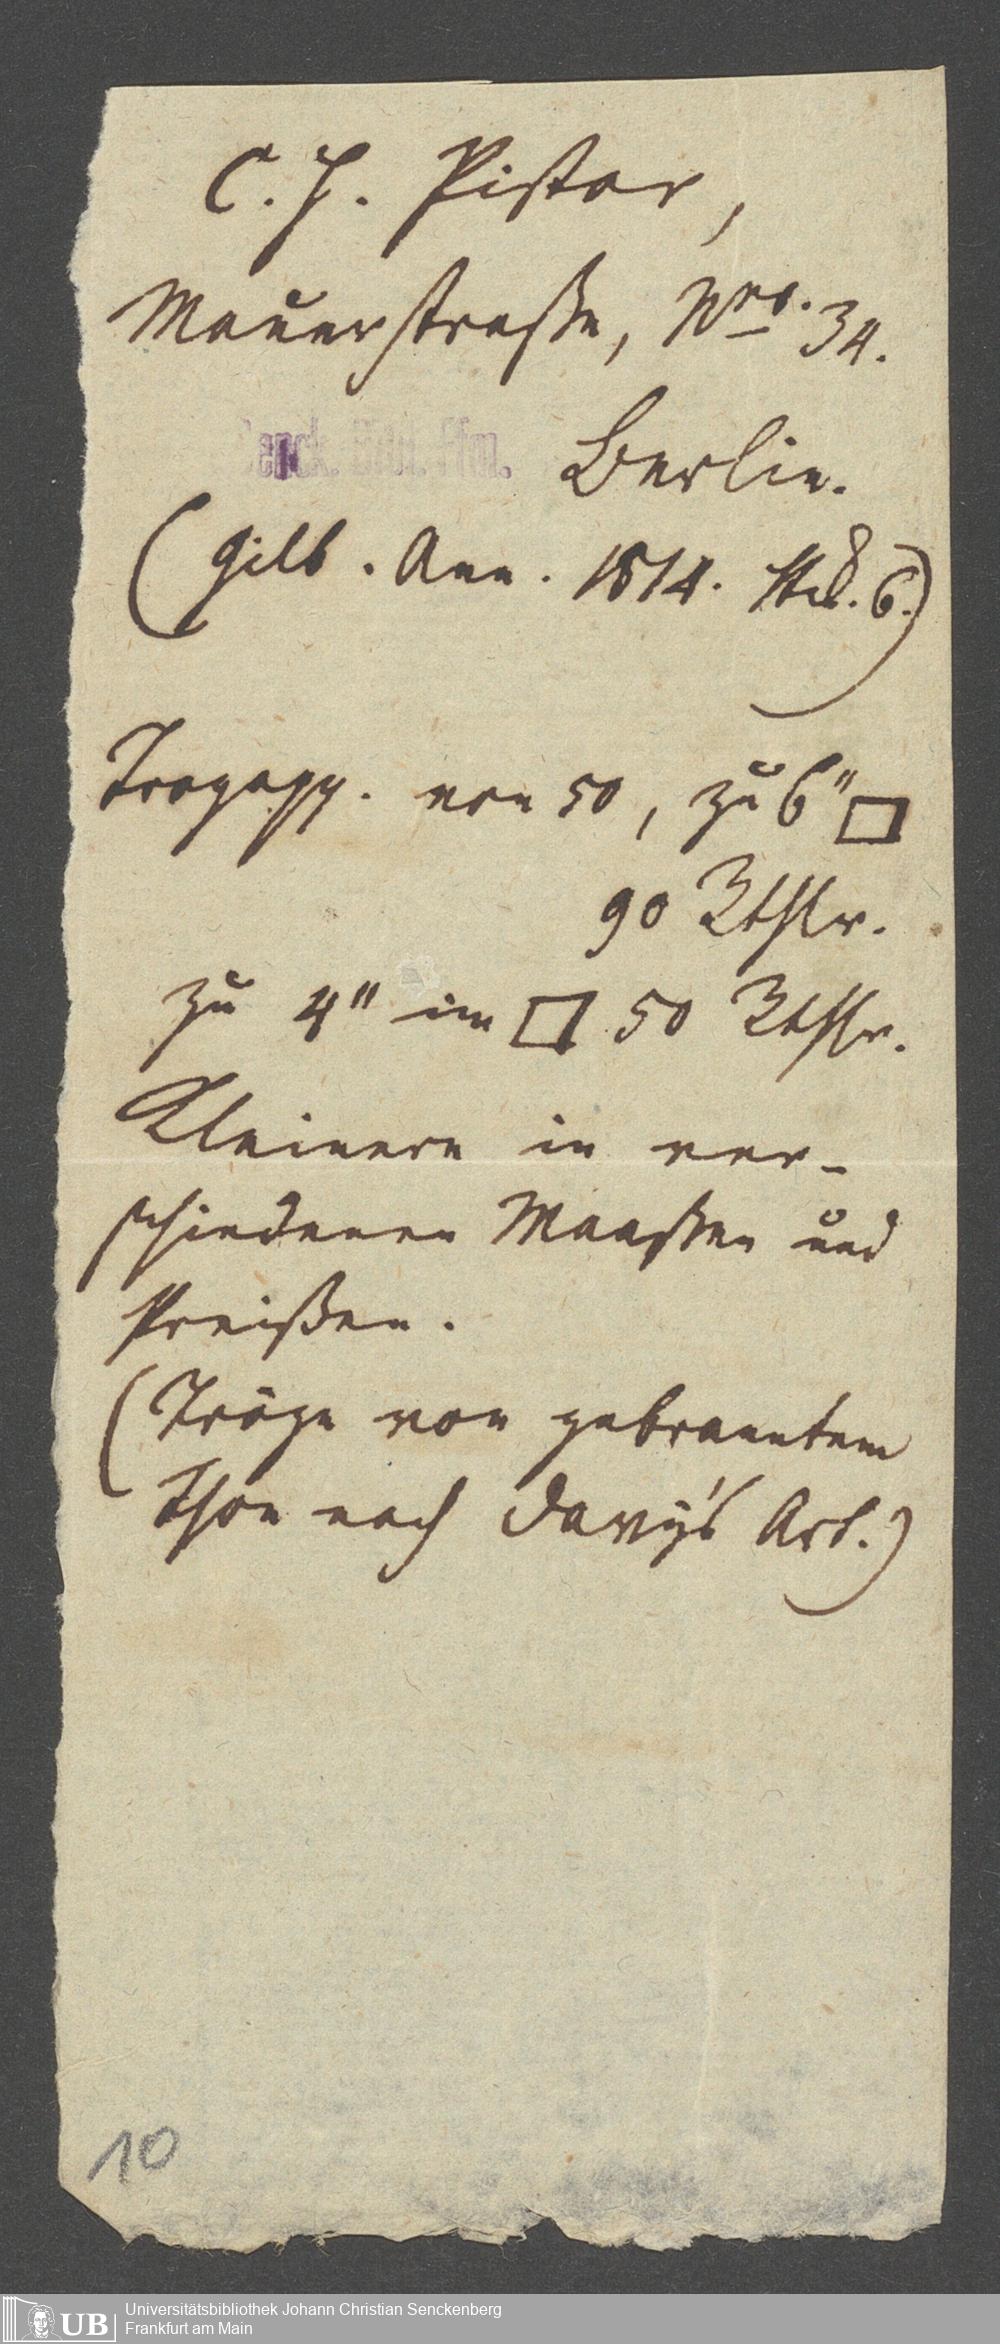 C. H. Pistor,
Mauerstraße, Nro. 34.
Senck. Bibl. Ffm.
Berlin.
(Gilb. Ann. 1814. Stck. 6.)
Trogapp. von 50, zu 6" □
90 Rthlr.
zu 4" im □ 50 Rthlr.
Kleinere in ver-
schiedenen Maaßen und
Preißen.
(Tröge von gebranntem
Thon nach Davy's Art.)
10
UB
Universitätsbibliothek Johann Christian Senckenberg
Frankfurt am Main